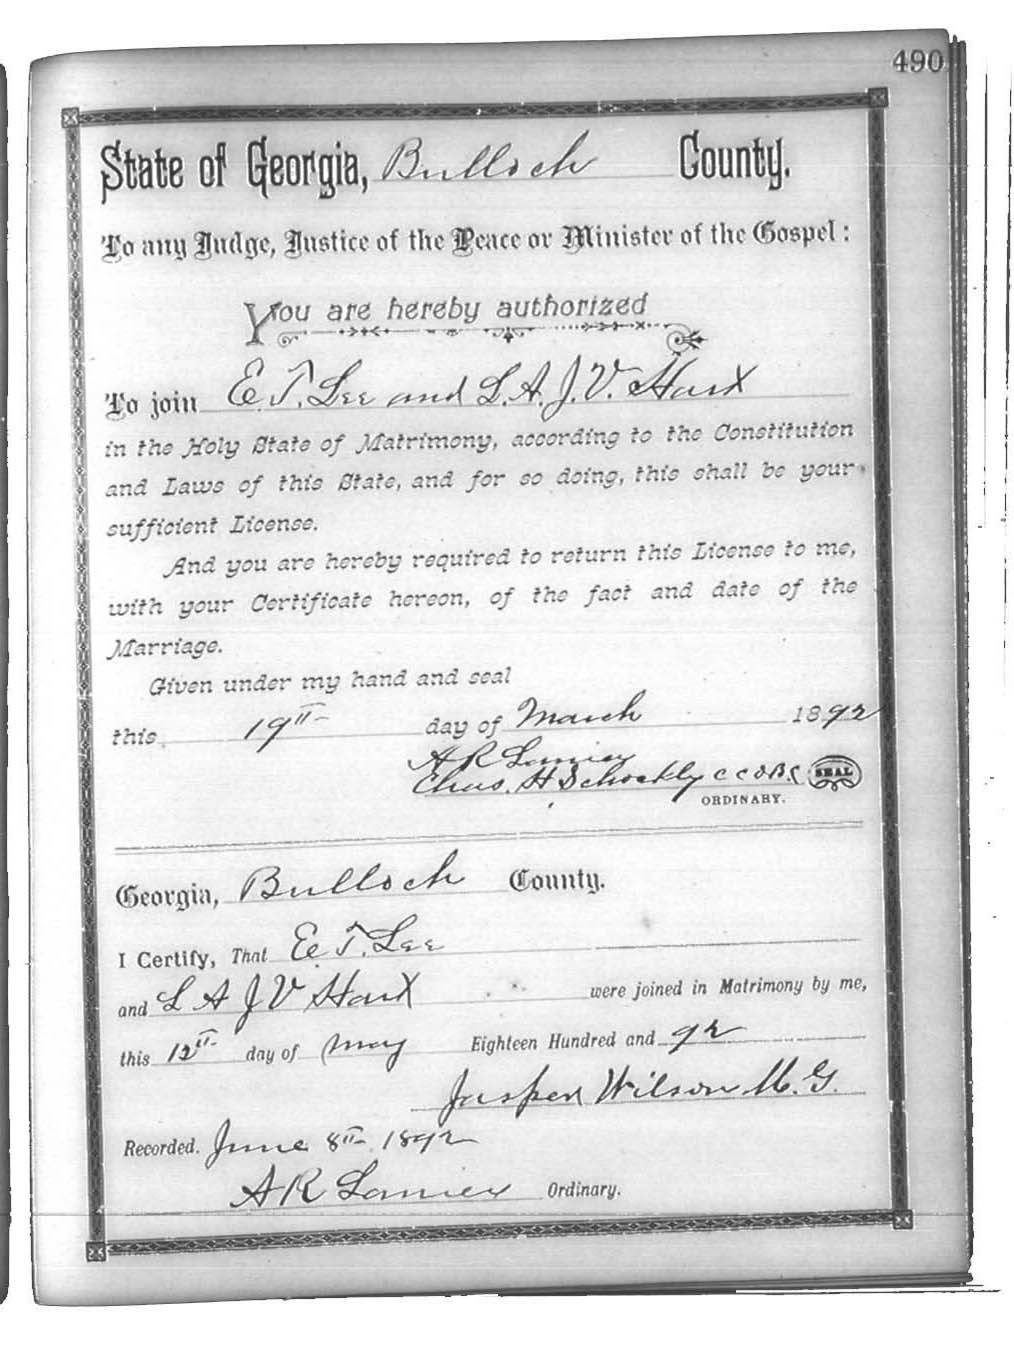 490
State of Georgia, Bulloch County.
To any Judge, Justice of the Peace or Minister of the Gospel:
You are hereby authorized
To join E. T. Lee and L. A. J. V. Hart
in the Holy State of Matrimony, according to the Constitution
and Laws of this State, and for so doing, this shall be your
sufficient License.
And you are hereby required to return this License to me,
with your Certificate hereon, of the fact and date of the
Marriage.
Given under my hand and seal
this 19th day of March 1892
A R Lanier
Chas. H Schockly C C O B C SEAL
ORDINARY.
Georgia, Bulloch County.
I Certify, That E. T. Lee
and L A J V Hart were joined in Matrimony by me,
this 12th day of May Eighteen Hundred and 92
Jasper Wilson M. G.
Recorded. June 8th 1892
A R Lanier Ordinary.